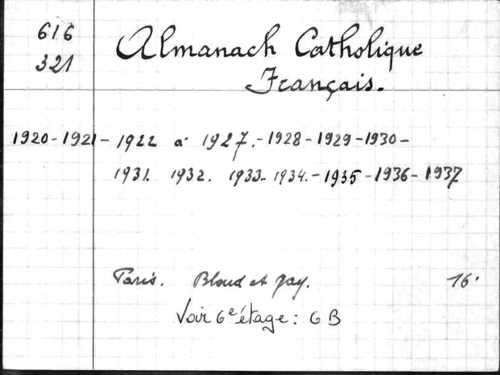 616
321
Almanach Catholique
Français.
1920-1921-1922 à 1927.-1928-1929-1930-
1931. 1932. 1933-1934.-1935-1936-1937
Paris. Bloud et Gay. 16.
Voir 6e étage: 6 B